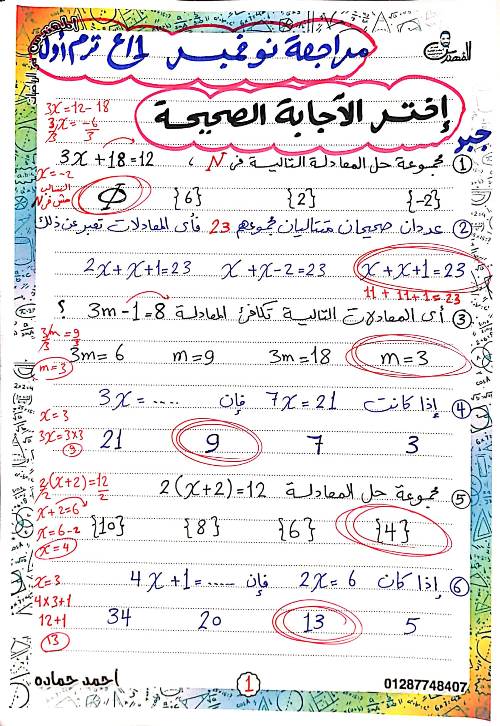 مراجعة نوفمبر ١ع ترم أول
إختر الأجابة الصحيحة
جبر
① مجموعة حل المعادلة التالية في N ، 3x + 18 = 12
{-2} {2} {6} Φ
3x = 12 - 18
3x/3 = -6/3
x = -2
السالب
مش في N
② عددان صحيحان متتاليان مجموعهم 23 فأى المعادلات تعبر عن ذلك
x + x + 1 = 23 x + x - 2 = 23 2x + x + 1 = 23
11 + 11 + 1 = 23
③ أى المعادلات التالية تكافئ المعادلة 3m - 1 = 8 ؟
m = 3 3m = 18 m = 9 3m = 6
3m/3 = 9/3
m = 3
④ إذا كانت 7x = 21 فإن 3x = .....
3 7 9 21
x = 3
3x = 3×3
9
⑤ مجموعة حل المعادلة 2(x+2) = 12
{4} {6} {8} {10}
2(x+2)/2 = 12/2
x + 2 = 6
x = 6 - 2
x = 4
⑥ إذا كان 2x = 6 فإن 4x + 1 = .....
5 13 20 34
x = 3
4×3+1
12+1
13
احمد حماده
1
01287748407